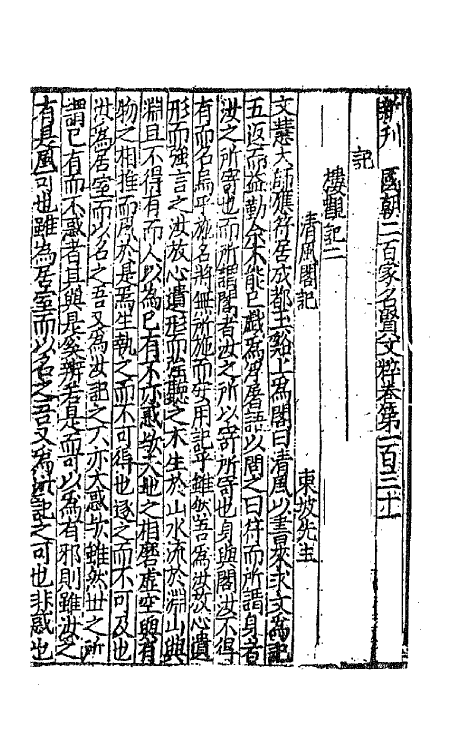 新刊 國朝二百家名賢文粹卷第一百三十一
記
樓觀記二
清風閣記 東坡先生
文慧大師應符居成都玉谿上爲閣曰清風以書來求文爲記
五返而益勤余不能已戲爲浮屠語以問之曰符而所謂身者
汝之所寄也而所謂閣者汝之所以寄所寄也身與閣汝不得
有而名烏乎施名將無所施而安用記乎雖然吾爲汝放心遺
形而強言之汝放心遺形而強聽之木生於山水流於淵山與
淵且不得有而人以爲已有不亦惑歟天地之相磨虛空與有
物之相推而風於是焉生執之而不可得也逐之而不可及也
汝爲居室而以名之吾又爲汝記之不亦大惑歟雖然世之所
謂已有而不惑者其與是奚辨若是而可以爲有邪則雖汝之
有是風可也雖爲居室而以名之吾又爲汝記之可也非惑也